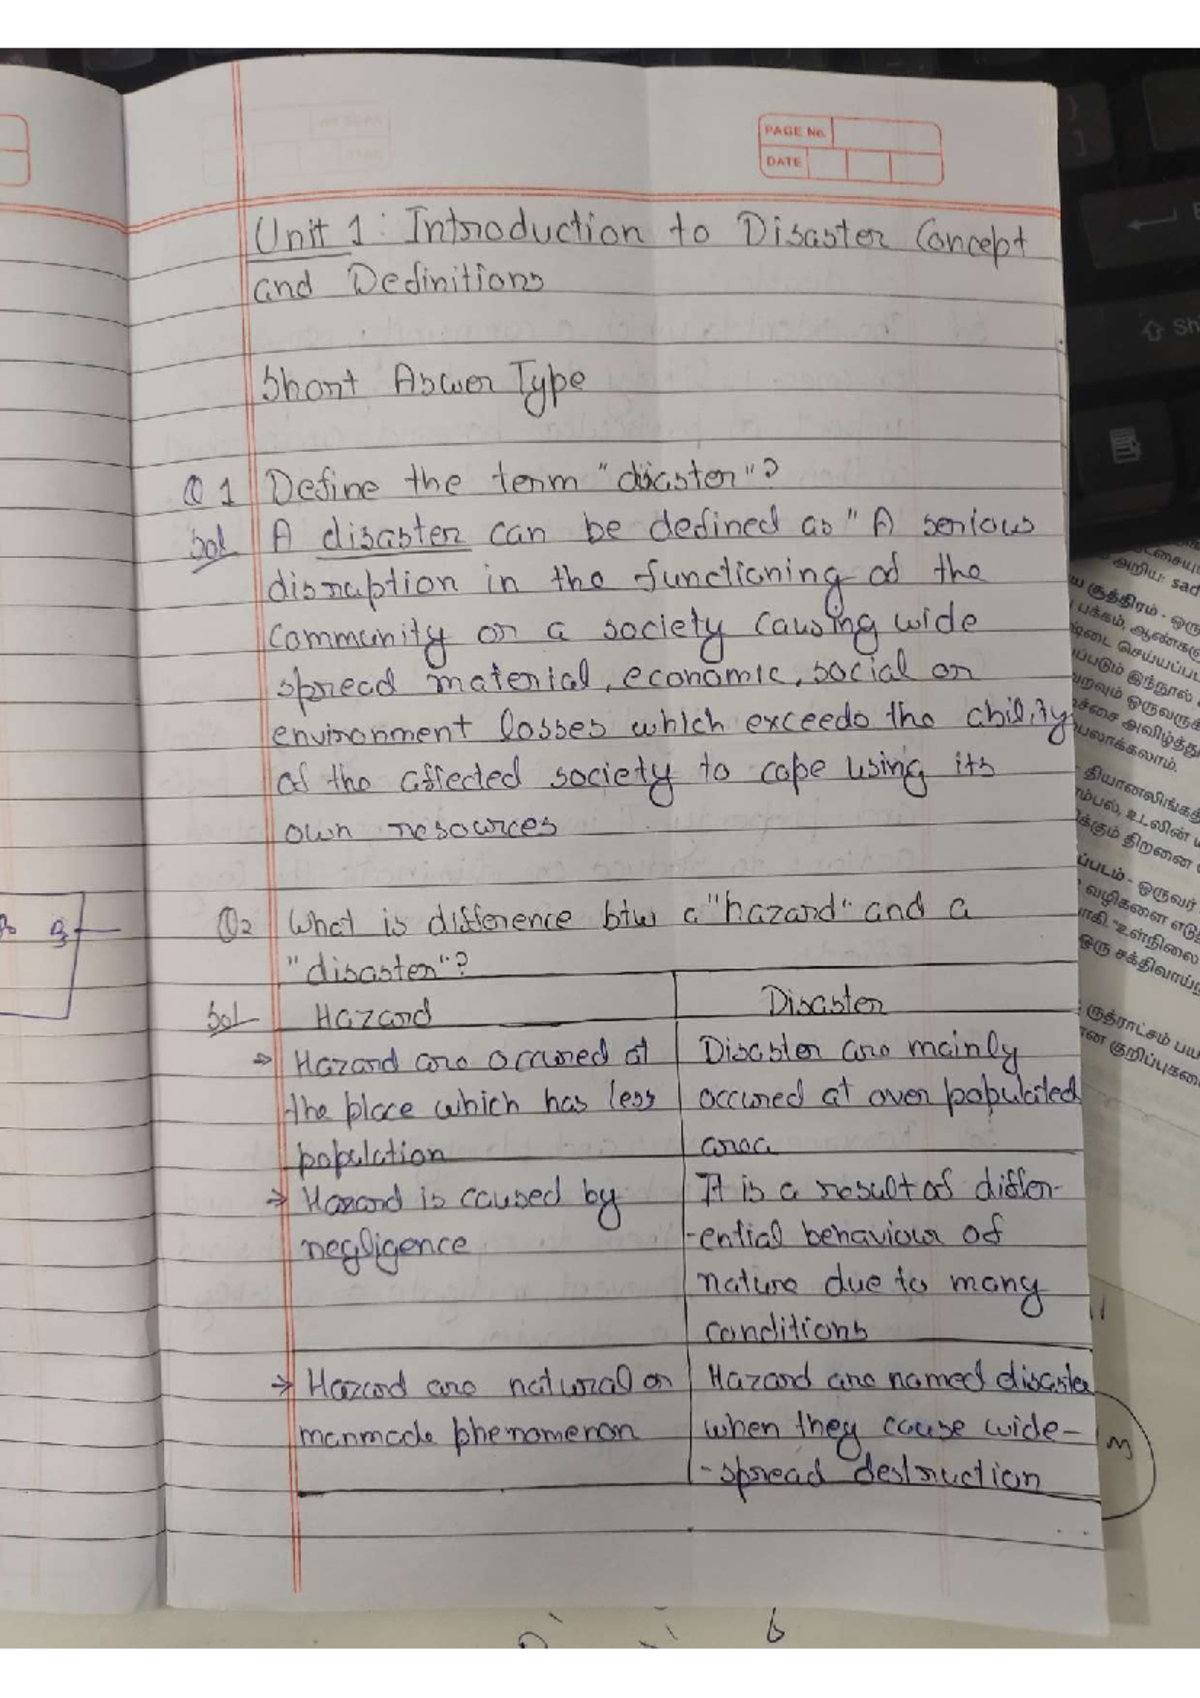 PAGE No.
DATE
Unit 1: Introduction to Disaster Concept
and Dedinitions
Short Aswer Type
Q 1 Define the term "disaster"?
Sol A disaster can be dedined as "A serious
disruption in the functioning od the
community or a society causing wide
spread material, economic, social or
environment losses which exceeds the ability
od the affected society to cope using its
own resources
Q2 What is difference btw a "hazard" and a
"disaster"?
Sol Hazard | Disaster
→ Hazard are occured at | Disaster are mainly
the place which has less | occured at over populated
population | area
→ Hazard is caused by | It is a result of differ-
negligence | -ential behaviour of
nature due to many
conditions
→ Hazard are natural or | Hazard are named disaster
manmade phenomenon | when they cause wide-
-spread destruction